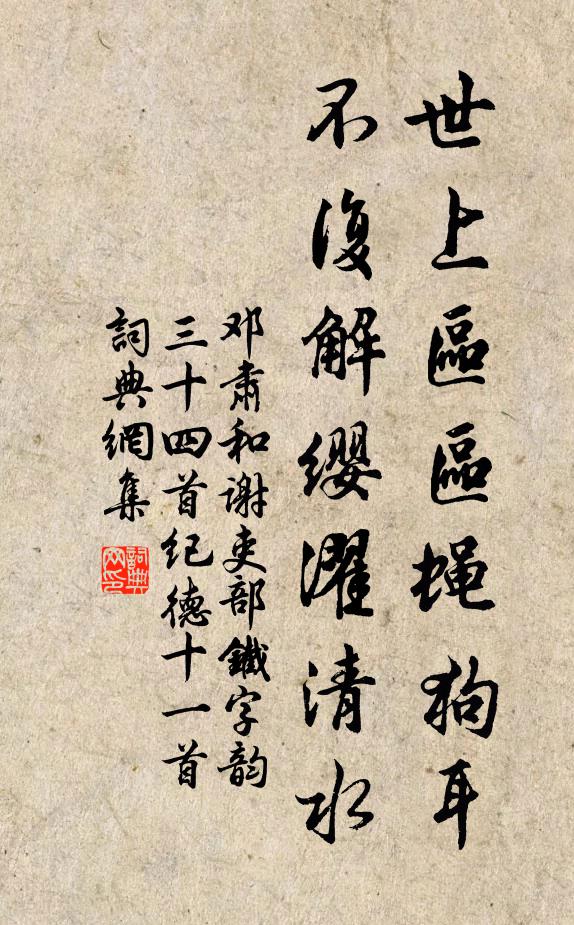 世上區區蝇狗耳
不復解缨濯清水
邓肅和谢吏部鐵字韵
三十四首纪德十一首
詞典網集
詞典网印